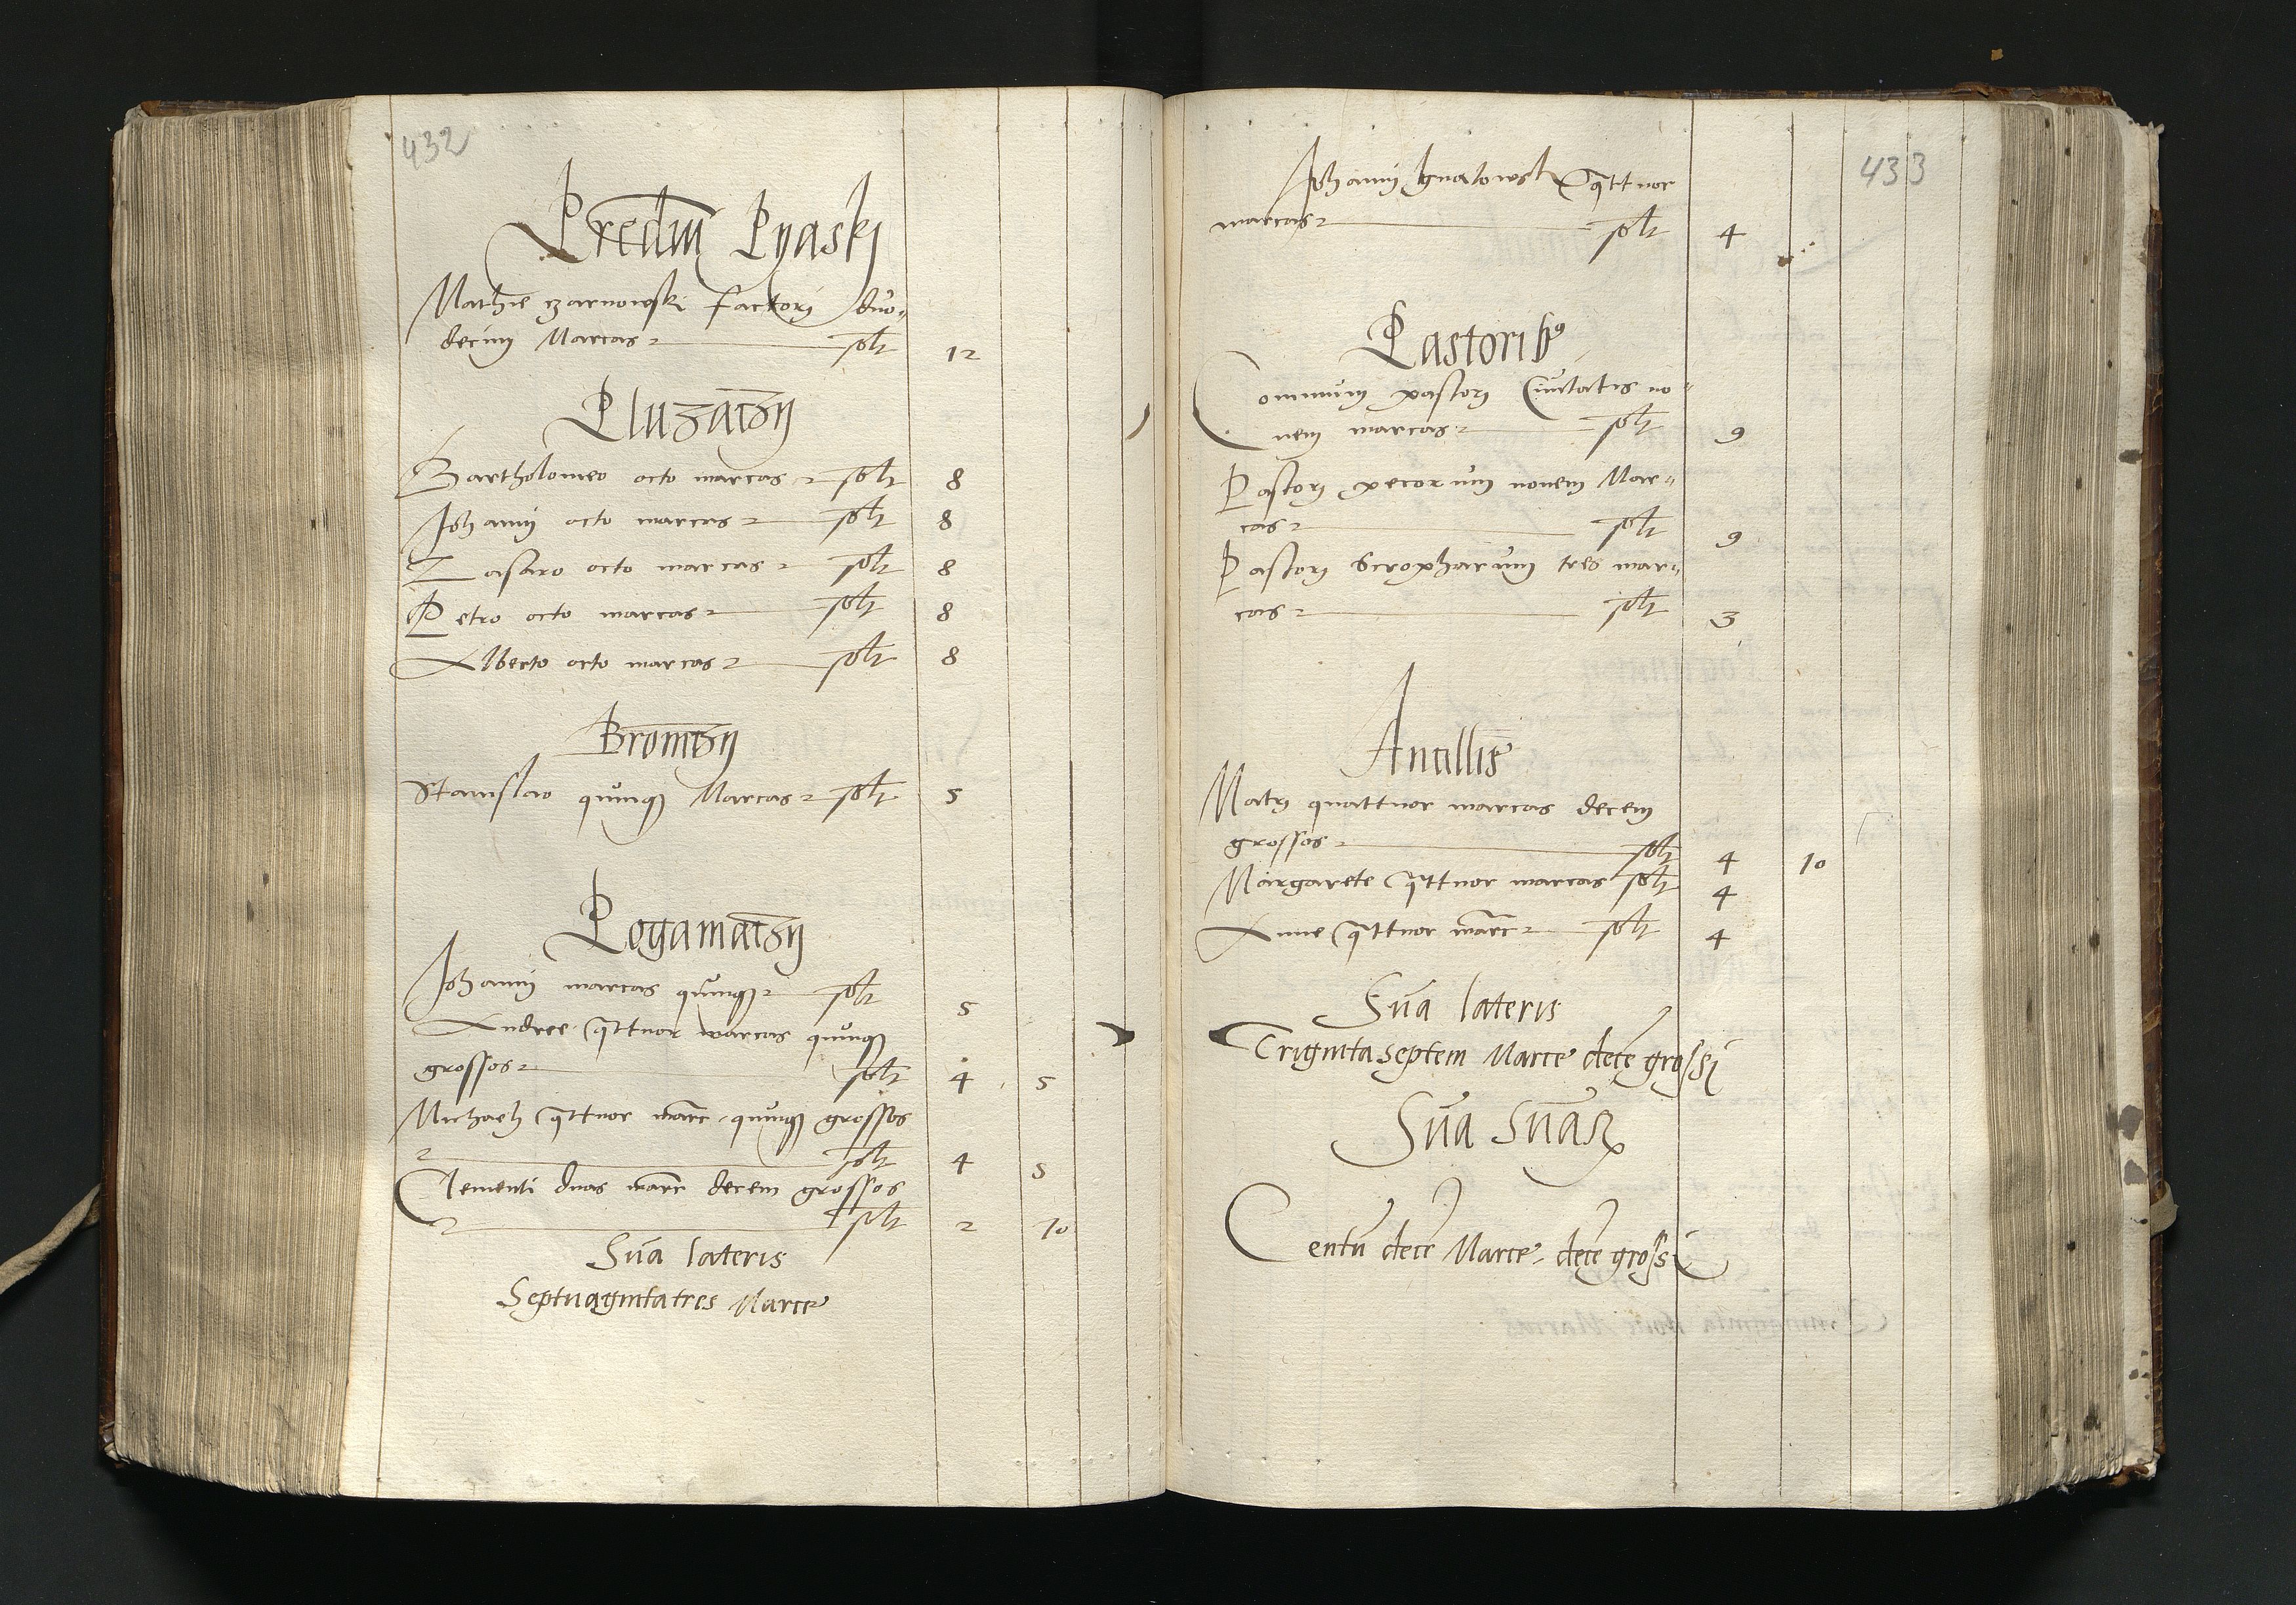 432
Prediũ Pyaski
Mathie czarnowski factorj duo„
decim Marcas solt 12
Pluzatzÿ
Bartholomeo octo marcas solt 8
Johanni octo marcas solt 8
Lasaro octo marcas solt 8
Petro octo marcas solt 8
Alberto octo marcas solt 8
Bromtzÿ
Stanislao quinqȝ Marcas solt 5
Pogamatzÿ
Johanni marcas quinqȝ solt 5
Andree qattuor marcas quinqȝ
grossos solt 4 5
Michaeli qattuor marc quinqȝ grossos
solt 4 5
Clementi duas marc decem grossos
solt 2 10
Sũa lateris
Septuagintatres Marce
433
Johanni qattuor
marcas solt 4
Pastoribꝰ
Communi pastorj Ciuitatis no„
nem marcas solt 9
Pastorj pecorum nonem Mar„
cas solt 9
Pastorj Scropharum tres mar„
cas solt 3
Ancillis
Matrj quattuor marcas decem
grossos solt 4 10
Margarete qattuor marcas solt 4
Anne qattuor marc solt 4
Sũa lateris
Trigintaseptem Marce decẽ grossi
Sũa Sũaꝝ
Centũ decẽ Marce decẽ grossi